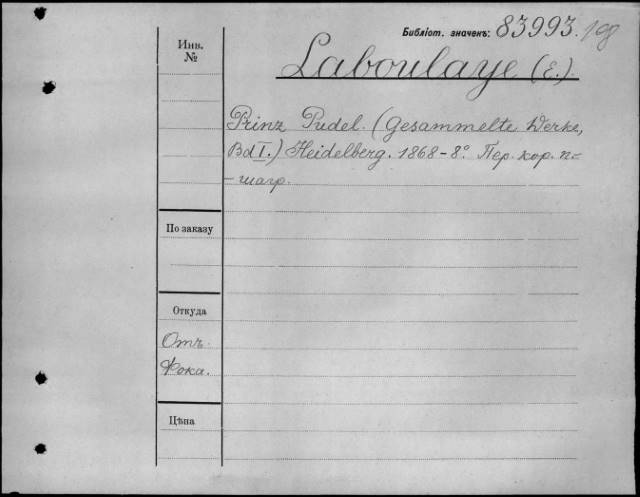 Библіот. значенъ: 83993.
Инв. №
Laboulaye (E.)
Prinz Pudel. (Gesammelte Werke,
Bd I.) Heidelberg. 1868-8° Пер. кор. п.-
-шагр.
По заказу
Откуда
Отъ
Фока.
Цѣна